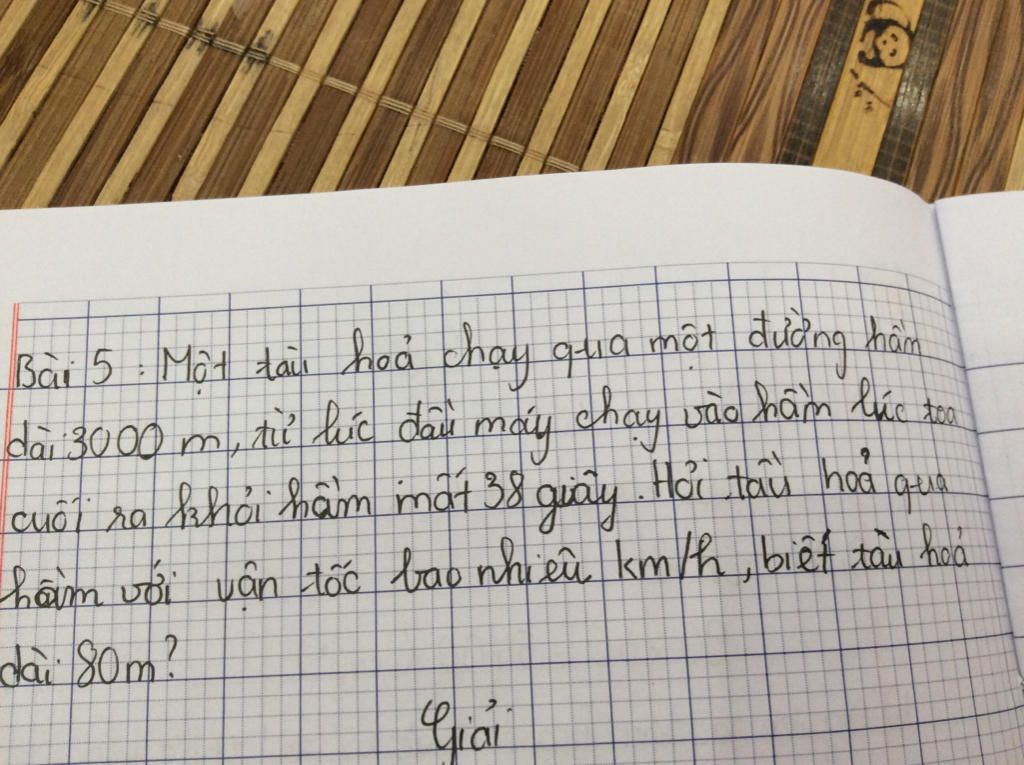 Bài 5 : Một tàu hoả chạy qua một đường hầm
dài 3000 m, từ lúc đầu máy chạy vào hầm lúc toa
cuối ra khỏi hầm mất 38 giây. Hỏi tầu hoả qua
hầm với vận tốc bao nhiêu km/h, biết tàu hoả
dài 80m?
Giải